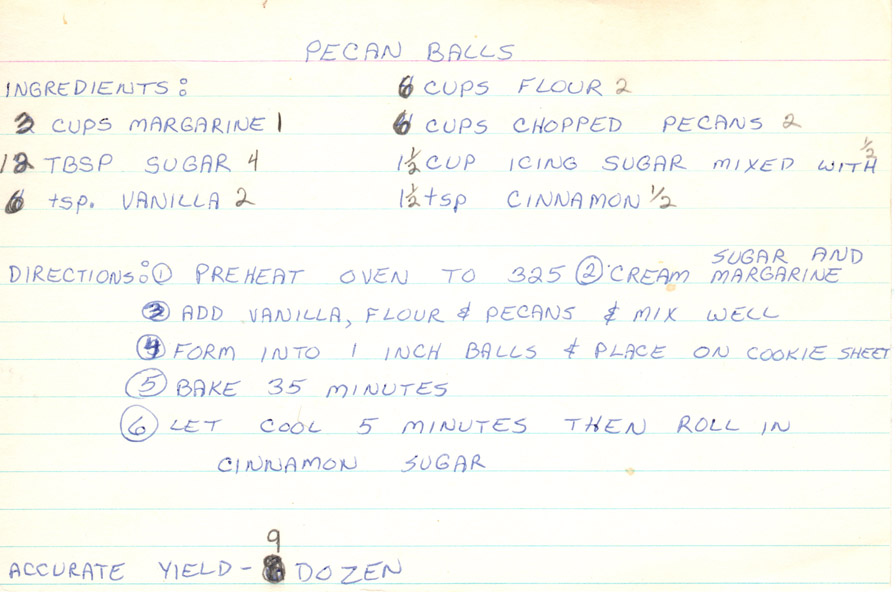 PECAN BALLS
INGREDIENTS: 6 CUPS FLOUR 2
3 CUPS MARGARINE 1 6 CUPS CHOPPED PECANS 2
12 TBSP SUGAR 4 1 1/2 CUP ICING SUGAR MIXED WITH 1/2
6 tsp. VANILLA 2 1 1/2 tsp CINNAMON 1/2
DIRECTIONS: ① PREHEAT OVEN TO 325 ② CREAM SUGAR AND MARGARINE
③ ADD VANILLA, FLOUR & PECANS & MIX WELL
④ FORM INTO 1 INCH BALLS & PLACE ON COOKIE SHEET
⑤ BAKE 35 MINUTES
⑥ LET COOL 5 MINUTES THEN ROLL IN
CINNAMON SUGAR
9
ACCURATE YIELD - DOZEN